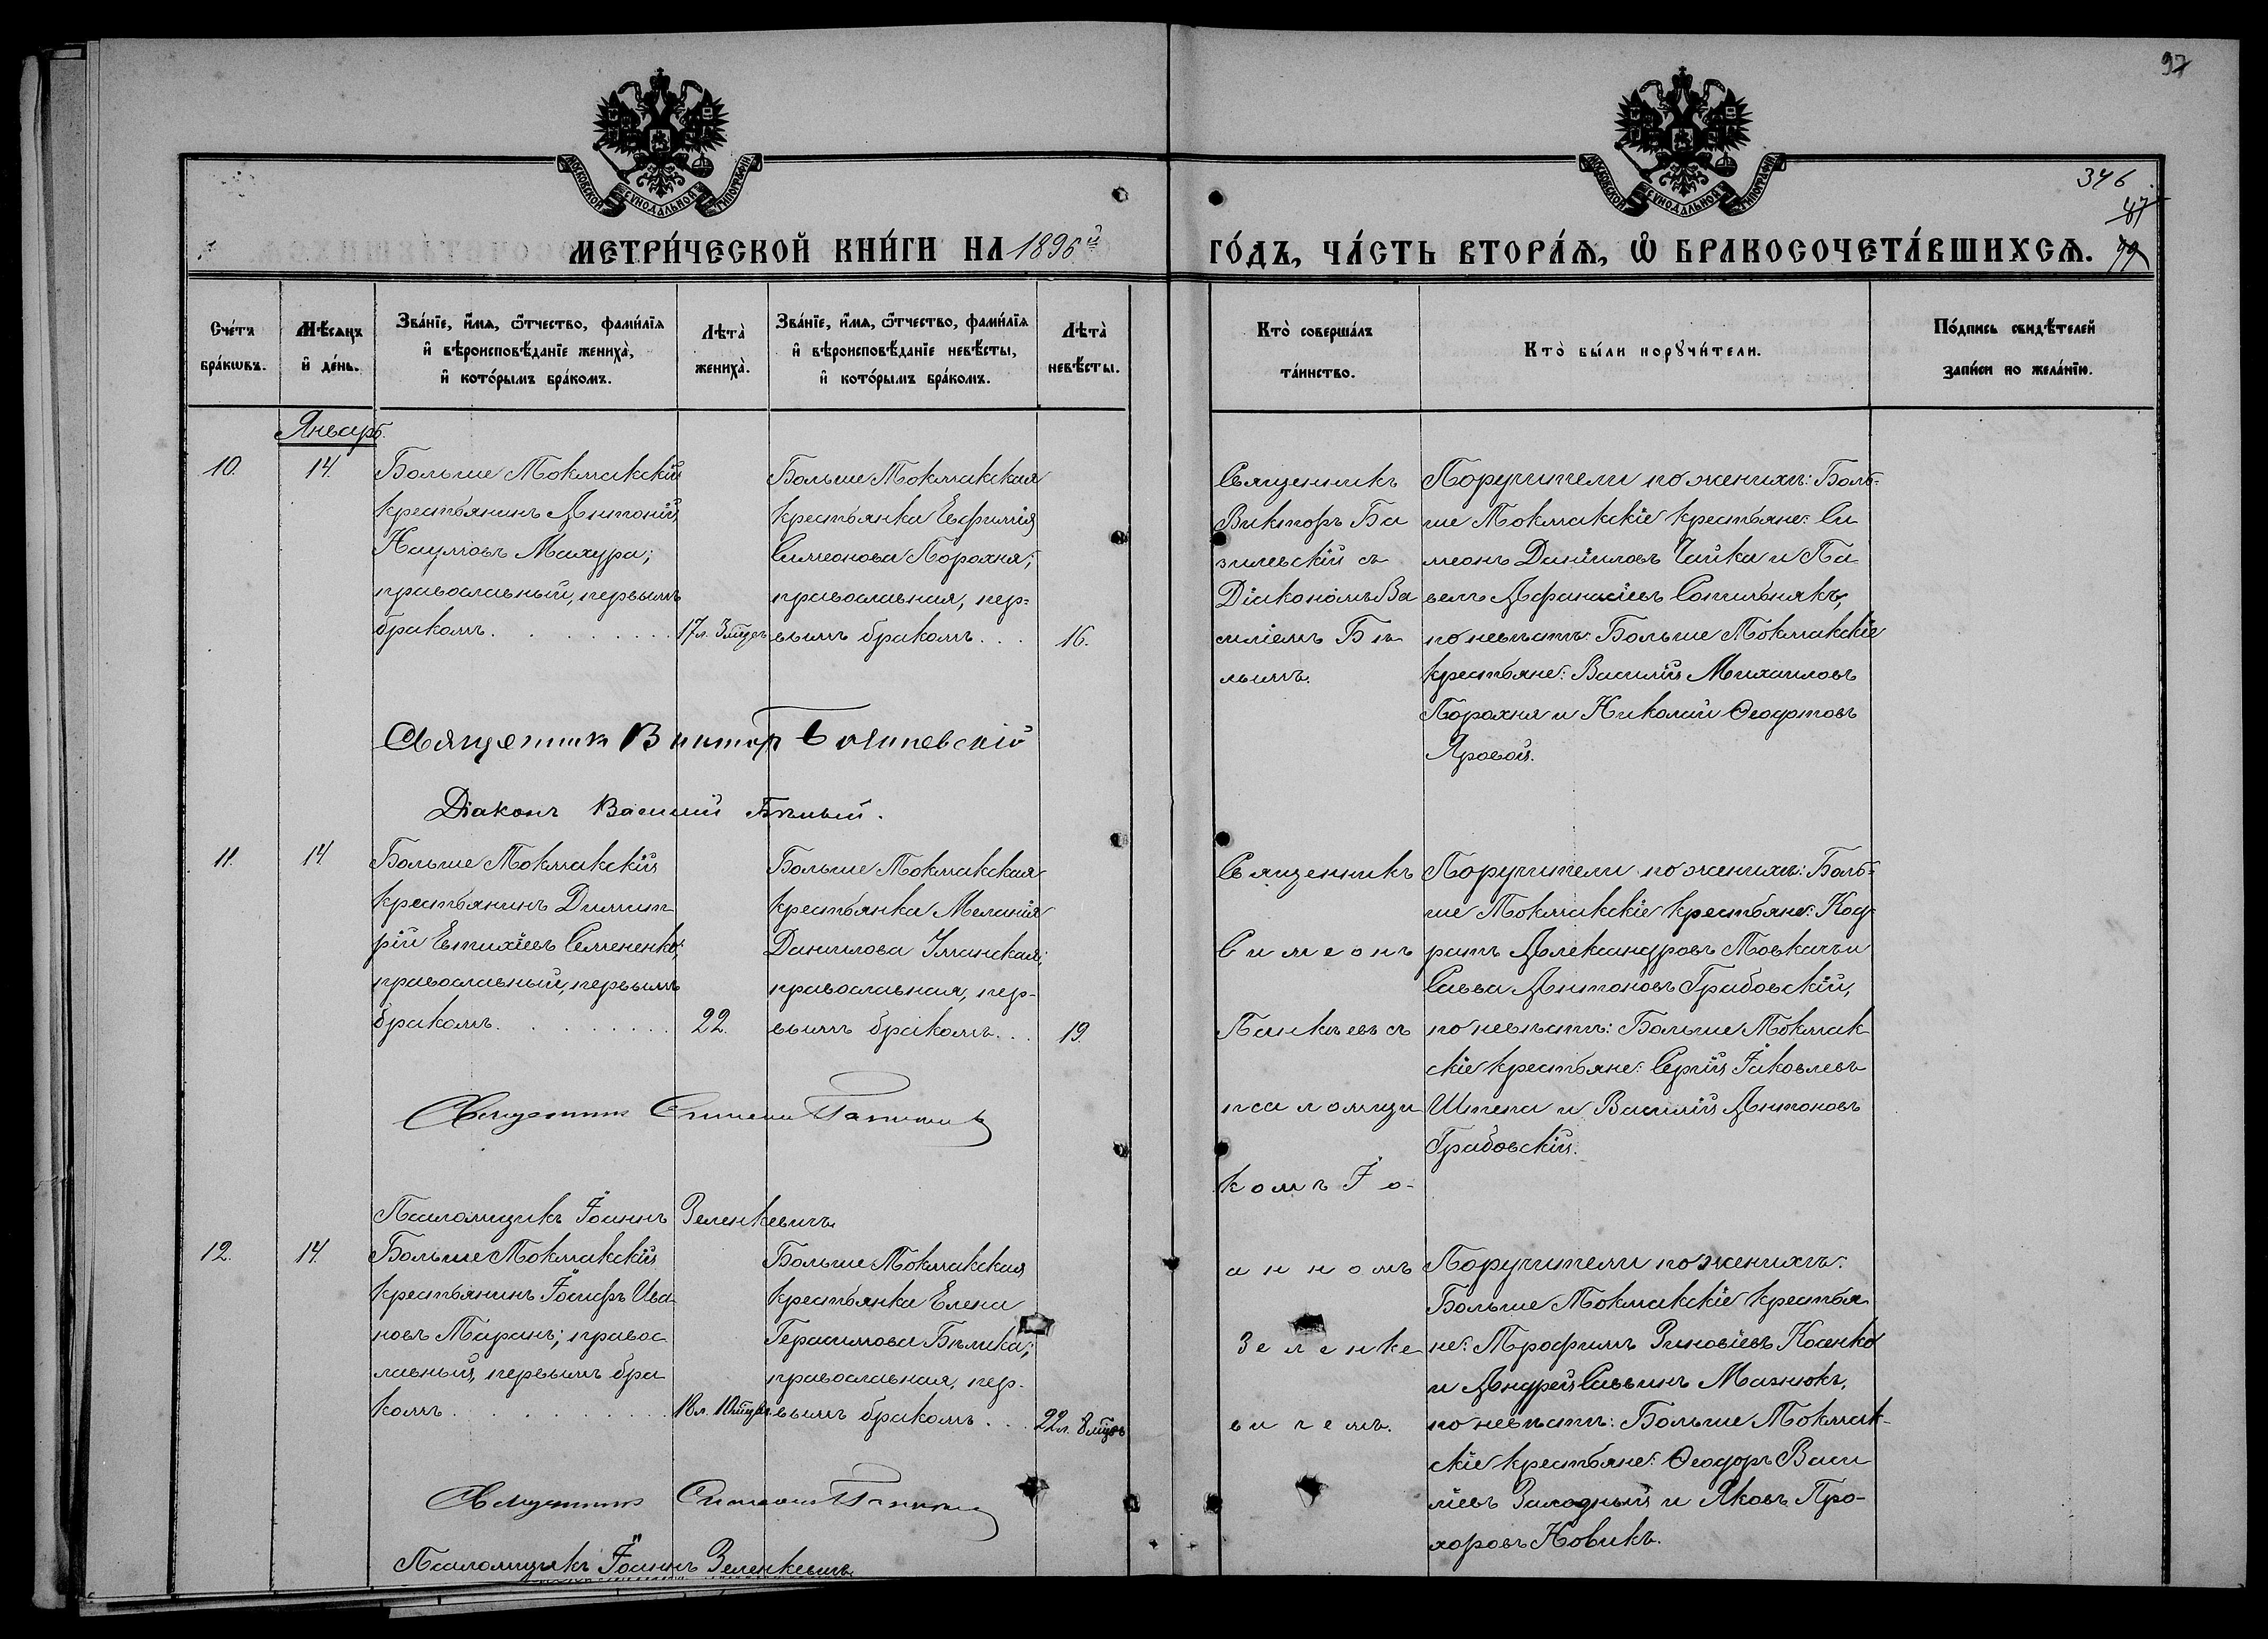 97
МОСКОВСКОЙ СѴНОДАЛЬНОЙ ТИПОГРАФІИ
МОСКОВСКОЙ СѴНОДАЛЬНОЙ ТИПОГРАФІИ
346
МЕТРИ́ЧЕСКОЙ КНИ́ГИ НА 1896й ГО́ДЪ, ЧА́СТЬ ВТОРА́Я, Ѡ БРАКОСОЧЕТА́ВШИХСЯ.
Сче́тъ бра́кѡвъ.
Мѣ́сяцъ и де́нь.
Зва́нїе, и́мя, ѻ҆́тчество, фами́лїя и вѣроисповѣ́данїе жениха̀, и кото́рымъ бра́комъ.
Лѣта̀ жениха̀.
Зва́нїе, и́мя, ѻ҆́тчество, фами́лїя и вѣроисповѣ́данїе невѣ́сты, и кото́рымъ бра́комъ.
Лѣта̀ невѣ́сты.
Кто̀ соверша́лъ та́инство.
Кто̀ бы́ли порꙋчи́тели.
По́дпись свидѣ́телей за́писи по жела́нїю.
Январь.
10.
14.
Больше Токмакскій
крестьянинъ Антоній
Наумовъ Махура;
православный, первымъ
бракомъ.
17 л. 3 мѣсц.
Больше Токмакская
крестьянка Евфимія
Симеонова Порохня;
православная, пер-
вымъ бракомъ...
16.
Священникъ
Викторъ Ба
зилевскій съ
Діакономъ Ва
силіемъ Бѣ
лымъ.
Поручители по женихѣ: Боль-
ше Токмакскіе крестьяне: Си
меонъ Даніиловъ Чайка и Па
велъ Афанасіевъ Сотильнякъ,
по невѣстѣ: Больше Токмакскіе
крестьяне: Василій Михаиловъ
Порохня и Николай Ѳеодотовъ
Яровой.
Священник Виктор Базилевскій
Діаконъ Василій Бѣлый.
11.
14.
Больше Токмакскій
крестьянинъ Димит
рій Евтихіевъ Семененко;
православный, первымъ
бракомъ.
22.
Больше Токмакская
крестьянка Меланія
Данилова Уманская;
православная, пер-
вымъ бракомъ...
19.
Священникъ
Симеонъ
Панкѣевъ съ
псаломщи
комъ Іо-
анномъ
Зеленке
вичемъ.
Поручители по женихѣ: Боль-
ше Токмакскіе крестьяне: Код
ратъ Александровъ Товкачъ и
Савва Антоновъ Грабовскій,
по невѣстѣ: Больше Токмак-
скіе крестьяне: Сергій Іаковлевъ
Штепа и Василій Антоновъ
Грабовскій.
Священник Симеон Панкѣев
Псаломщикъ Іоаннъ Зеленкевичъ
12.
14.
Больше Токмакскій
крестьянинъ Іосифъ Ива
новъ Таранъ; правос
лавный, первымъ бра
комъ
18 л. 10 мѣсц.
Больше Токмакская
крестьянка Елена
Герасимова Бѣлика;
православная, пер-
вымъ бракомъ...
22 л. 8 мѣсц.
Поручители по женихѣ:
Больше Токмакскіе крестья
не: Трофимъ Зиновіевъ Косенко
и Андрей Саввинъ Мазнюкъ,
по невѣстѣ: Больше Токмак-
скіе крестьяне: Ѳеодоръ Васи
ліевъ Заходный и Яковъ Про-
хоровъ Новикъ.
Священник Симеон Панкѣев
Псаломщикъ Іоаннъ Зеленкевичъ